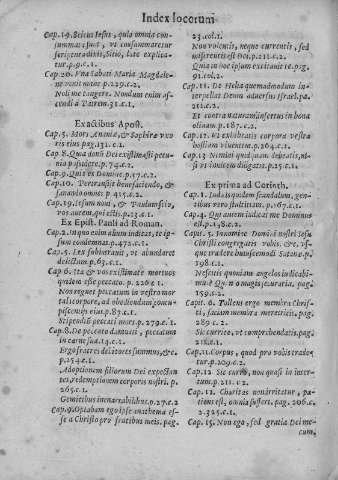 Index locorum
Cap. 19. Sciens Iesus, quia omnia con-
summata sunt, vt consummaretur
scriptura dixit, Sitio, late explica-
tur. p.9.c.1.
Cap. 20. Vna Sabati Maria Magdale-
ne vanit notne p.229.c.2.
Noli me tangere. Nondum enim as-
cendi a Patrem.31.c.1.
Ex actibus Apost.
Cap. 5. Mors Ananiæ, & Saphiræ vxo
ris eius pag. 131. c.1.
Cap. 8. Qua donũ Dei existimasti pecu-
nia possidere p.74.c.2.
Cap. 9. Quis es Domine p.57.c.2.
Cap. 10. Pertransijt benefaciendo, &
sanando omnes p 415.c.2.
Cap. 19. Iesum noui, & Paulum scio,
vos autem, qui estis p.23.c.1.
Ex Epist. Pauli ad Roman.
Cap. 2. In quo enim alium indicat, te ip-
sum condemnas. p.473.c.1.
Cap. 5. Lex subintrauit, vt abundaret
delictum. p.63.c.1.
Cap. 6. Ita & vos existimate mortuos
quidem esse peccato p.226.c 1.
Non regnet peccatum in vestro mor
tali corpore, ad obediendum concu-
piscentijs eius p.87.c.1.
Stipendiũ peccati mors p.279.c.1.
Cap. 8. De peccato damnauit, peccatum
in carne sua. 14.c.1.
Ergo fratres debitores sumus, &c.
p.154.c.1.
Adoptionem filiorum Dei expectan
tes redemptionem corporis nostri. p.
265.c.1.
Gemitibus inenarrabilibus p.27.c.2
Cap. 9. Optabam ego ipse anathema es-
se a Christo pro fratibus meis. pag.
23.col.1.
Non volentis, neque currentis, sed
miserentis est Dei. p.211.c.2.
Quia in hoc ipsum excitaui te. p.g.
91.col.2.
Cap. 11. De Helia quemadmodum in-
terpellat Deum aduersus Israel. p.a.
211.c.2.
Et contra naturã insertus in bona
oliuam p.187.c.2.
Cap. 12. Vt exhibeatis corpora vestra
hostiam viuentem. p.204.c.1.
Cap. 13 Nemini quidquam debeatis, ni-
si vt inuicem diligatis. p.215.c.1.
Ex prima ad Corinth.
Cap. 1. Iudæis quidem scandalum, gen-
tibus vero stultitiam. p.167.c.1.
Cap. 4. Qui autem iudicat me Dominus
est. p.158.c.2.
Cap. 5. In nomine Domini nostri Iesu
Christi congregatis vobis, &c. vs-
que tradere huiusmodi Satanæ. p.
198.c.1.
Nescitis quoniam angelos iudicabi-
mus? Quãto magis secularia. pag.
159.c.2.
Capit. 6. Tollens ergo membra Chris-
ti, faciam membra meretricis. pag.
289 c.2.
Sic currite, vt comprehendatis. pag.
218.c.1.
Cap. 11. Corpus, quod pro vobis trade-
tur. p.209.c.2.
Cap. 12 Sic curro, non quasi in incer-
tum. p.211. c 2.
Cap. 13. Charitas non irritatur, pa-
tiens est, omnia suffert. pag. 206.c.
2.325.c.1.
Cap. 15. Non ego, sed gratia Dei me-
cum,